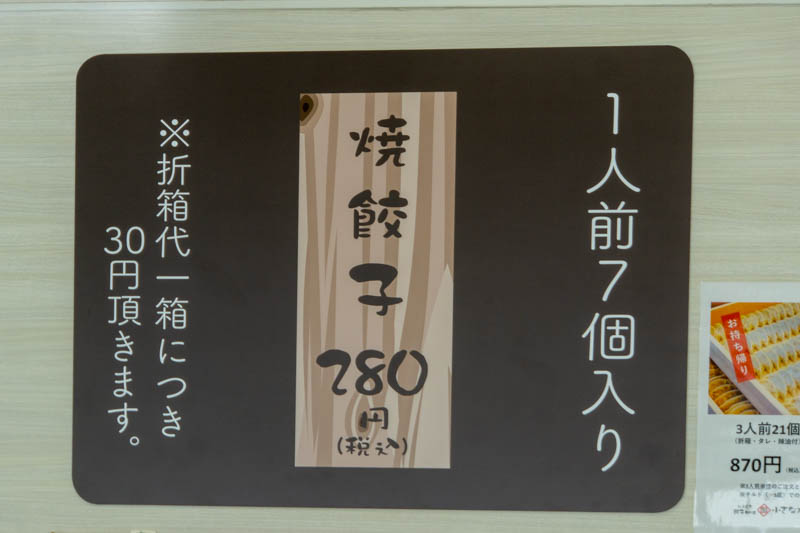 1人前7個入り
焼餃子
280
円
(税込)
※折箱代一箱につき
30円頂きます。
お持ち帰り
3人前21個
(折箱・タレ・辣油付)
870円